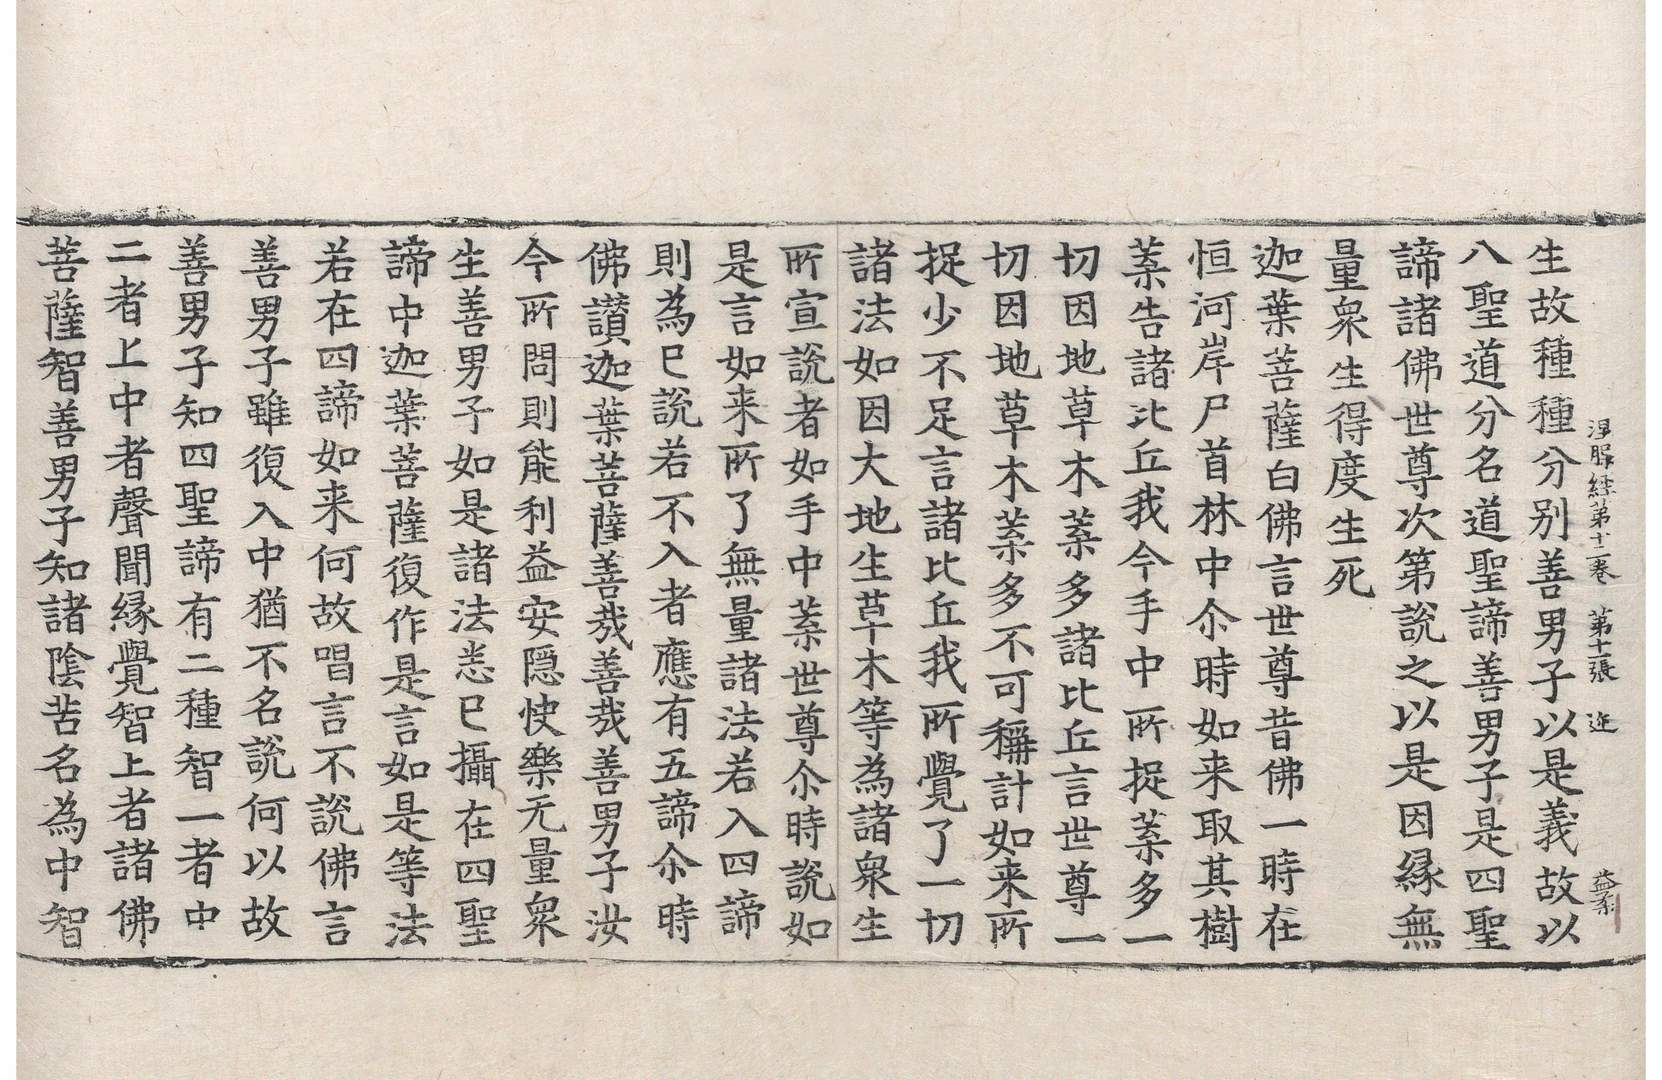 涅槃経第十二巻 第十二張 迩
生故種種分別善男子以是義故以
八聖道分名道聖諦善男子是四聖
諦諸佛世尊次第說之以是因縁無
量衆生得度生死
迦葉菩薩白佛言世尊昔佛一時在
恒河岸尸首林中尒時如来取其樹
葉告諸比丘我今手中所捉葉多一
切因地草木葉多諸比丘言世尊一
切因地草木葉多不可稱計如来所
捉少不足言諸比丘我所覺了一切
諸法如因大地生草木等為諸衆生
所宣說者如手中葉世尊尒時說如
是言如来所了無量諸法若入四諦
則為已說若不入者應有五諦尒時
佛讃迦葉菩薩善哉善哉善男子汝
今所問則能利益安隠快樂无量衆
生善男子如是諸法悉已攝在四聖
諦中迦葉菩薩復作是言如是等法
若在四諦如来何故唱言不說佛言
善男子雖復入中猶不名說何以故
善男子知四聖諦有二種智一者中
二者上中者聲聞縁覺智上者諸佛
菩薩智善男子知諸陰苦名為中智